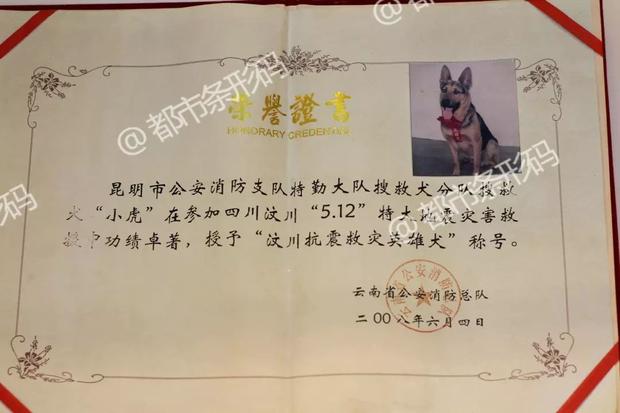 荣誉證書
HONORARY CREDENTIAL
昆明市公安消防支队特勤大队搜救犬分队搜救
犬“小虎”在参加四川汶川“5.12”特大地震灾害救
援中功绩卓著，授予“汶川抗震救灾英雄犬”称号。
云南省公安消防总队
二00八年六月四日
云南省公安消防总队
@都市条形码
@都市条形码
@都市条形码
@都市条形码
形码